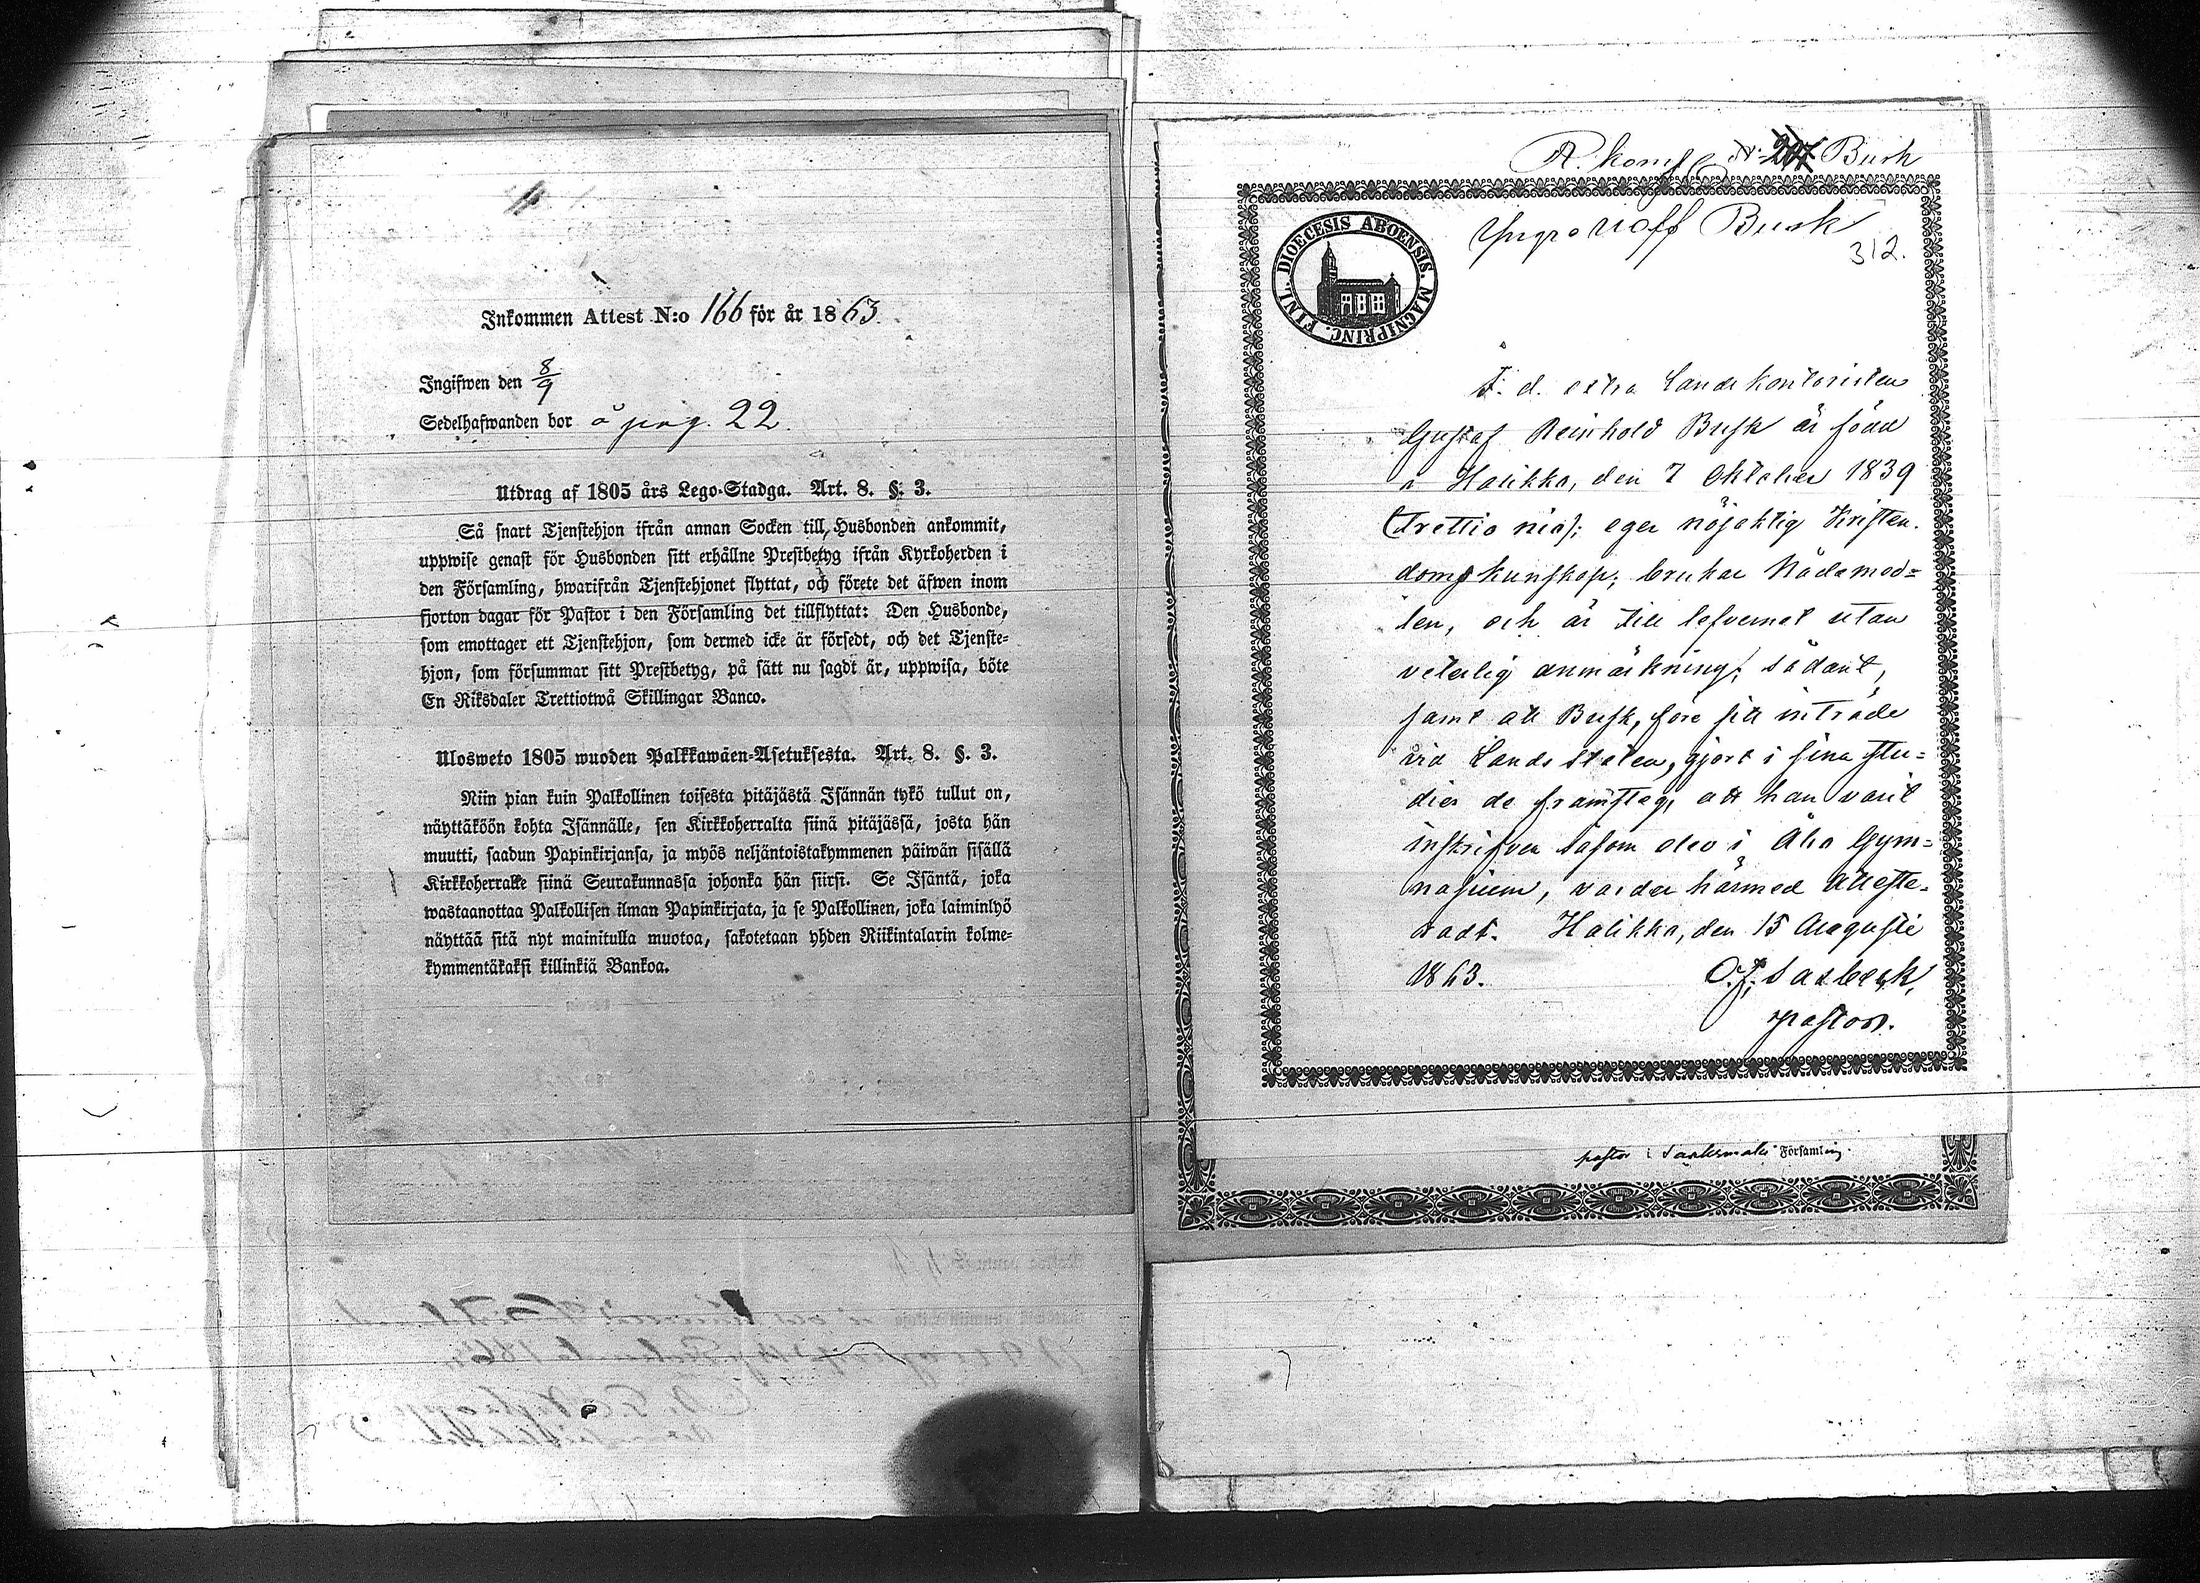 Inkommen Attest N:o 166 för år 1863.
Ingifwen den 8/9
Sedelhafwanden bor å pag. 22.
Utdrag af 1805 års Lego-Stadga. Art. 8. §. 3.
Så snart Tjenstehjon ifrån annan Socken till Husbonden ankommit,
uppwise genast för Husbonden sitt erhållne Prestbetyg ifrån Kyrkoherden i
den Församling, hwarifrån Tjenstehjonet flyttat, och förete det äfwen inom
fjorton dagar för Pastor i den Församling det tillflyttat: Den Husbonde,
som emottager ett Tjenstehjon, som dermed icke är försedt, och det Tjenste-
hjon, som försummar sitt Prestbetyg, på sätt nu sagdt är, uppwisa, böte
En Riksdaler Trettiotwå Skillingar Banco.
Ulosweto 1805 wuoden Palkkawäen-Asetuksesta. Art. 8. §. 3.
Niin pian kuin Palkollinen toisesta pitäjästä Isännän tykö tullut on,
näyttäköön kohta Isännälle, sen Kirkkoherralta siinä pitäjässä, josta hän
muutti, saadun Papinkirjansa, ja myös neljäntoistakymmenen päiwän sisällä
Kirkkoherralle siinä Seurakunnassa johonka hän siirsi. Se Isäntä, joka
wastaanottaa Palkollisen ilman Papinkirjata, ja se Palkollinen, joka laiminlyö
näyttää sitä nyt mainitulla muotoa, sakotetaan yhden Riikintalarin kolme-
kymmentäkaksi killinkiä Bankoa.
Busk
Busk
312.
DIOECESIS ABOENSIS MAGNIPRINC. FINL.
F. d. extra Landskontoristen
Gustaf Reinhold Busk är född
i Halikko, den 7 Oktober 1839
(trettio nio); eger nöjaktig Kristen-
domskunskap; brukar Nådamed-
len, och är till lefvernet utan
veterlig anmärkning; sådant,
samt att Busk, före sitt inträde
vid Landsstaten, gjort i sina stu-
dier de framsteg, att han varit
inskrifven såsom elev i Åbo Gym-
nasium, varder härmed atteste-
radt. Halikko, den 15 Augusti
1863.
pastor.
pastor i Församling.